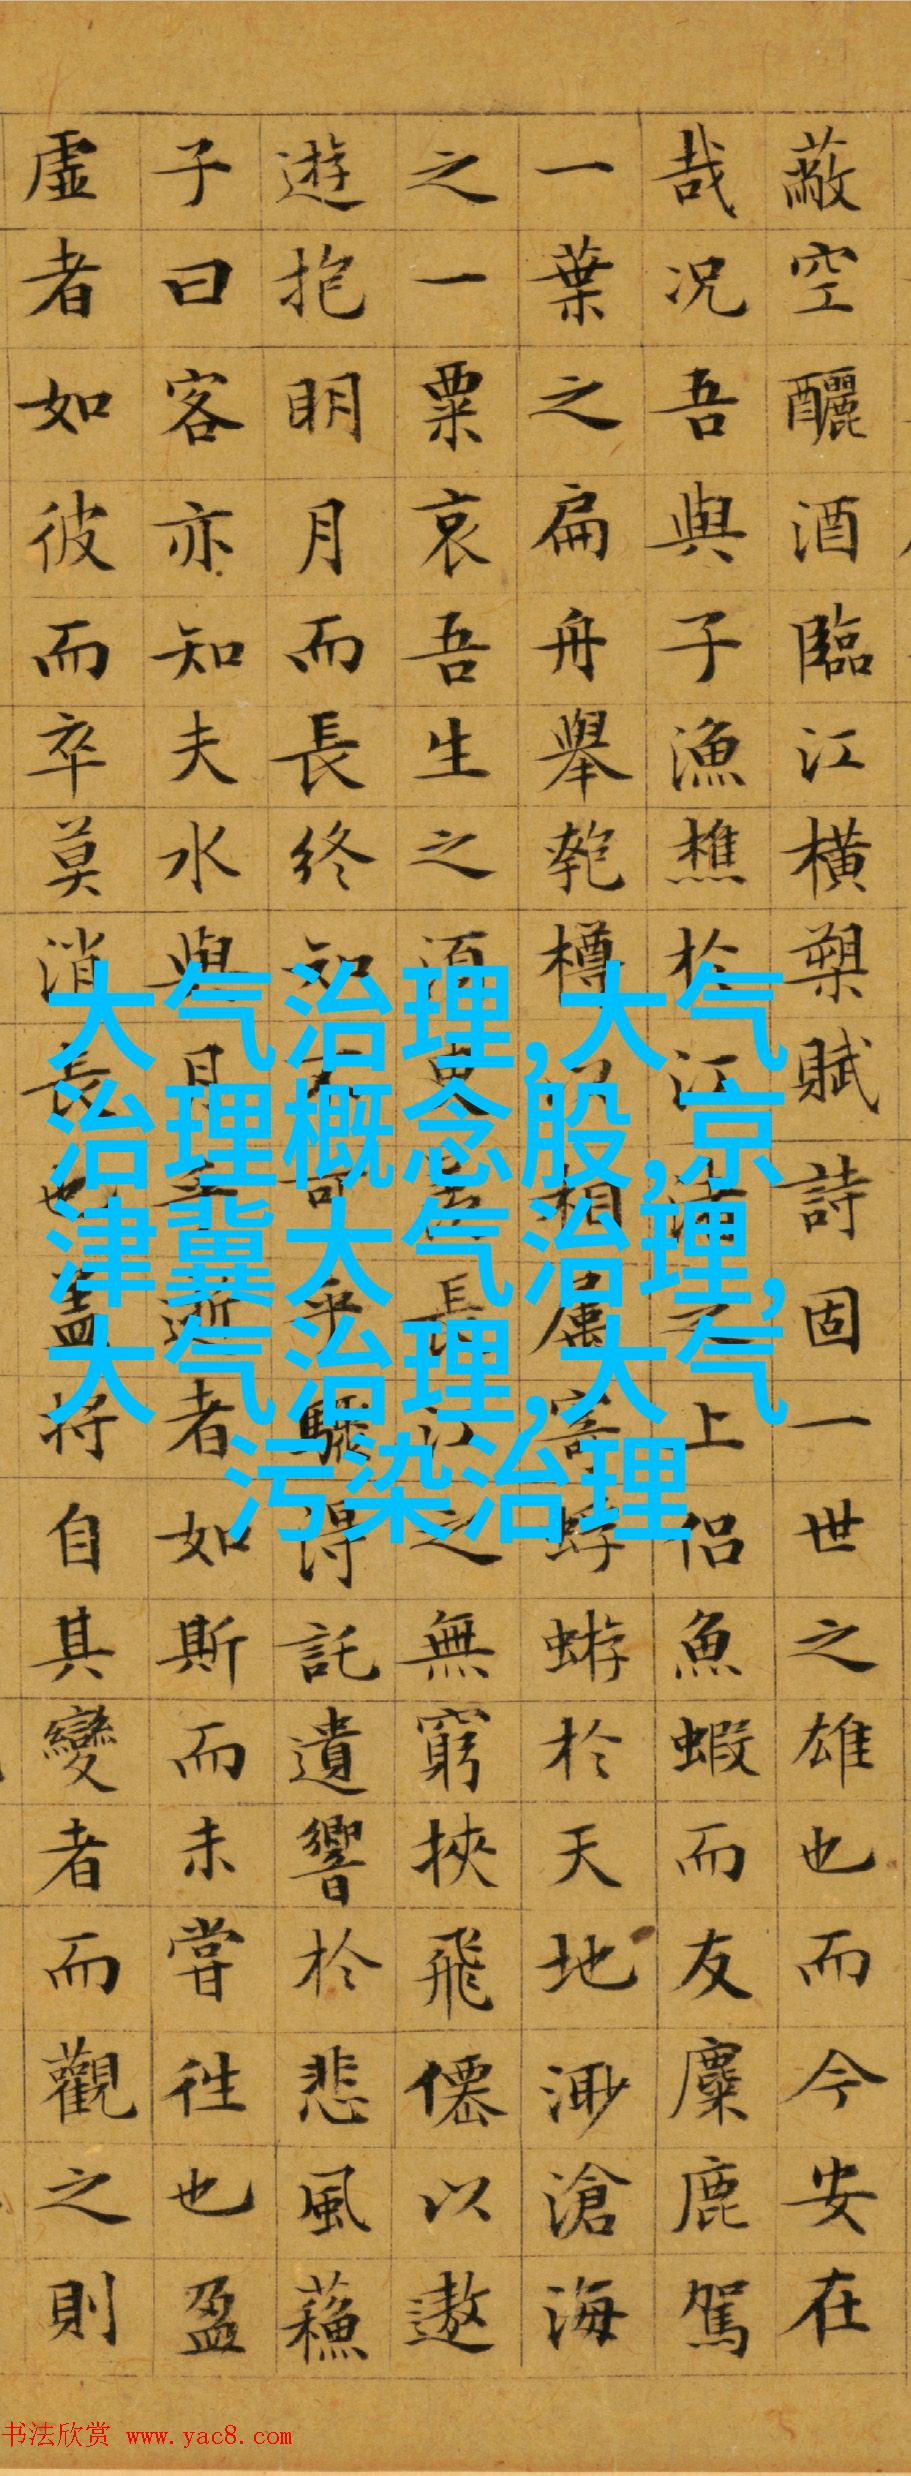 蔽空釃酒臨江橫槊賦詩固一世之雄也而今安在
哉况吾與子漁樵於江渚之上侶魚蝦而友麋鹿駕
一葉之扁舟舉匏樽以相属寄蜉蝣於天地渺滄海
之一粟哀吾生之須臾羨長江之無窮挾飛僊以遨
遊抱明月而長終知不可乎驟得託遺響於悲風蘓
子曰客亦知夫水與月乎逝者如斯而未嘗徃也盈
虛者如彼而卒莫消長也盖將自其變者而觀之則
大气治理,大气
治理概念股,京
津冀大气治理,
大气治理,大气
污染治理
书法欣赏 www.yac8.com